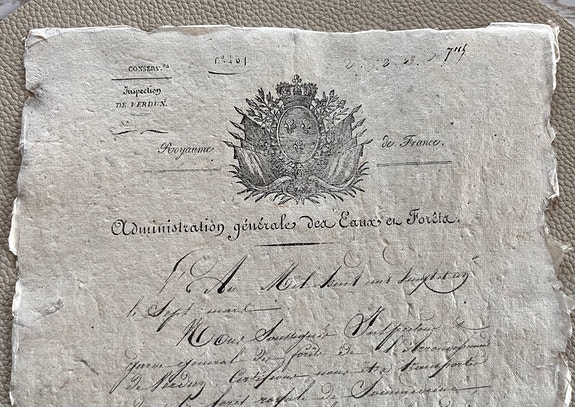 CONSERV.on
Inspection
DE VERDUN.
N.o
Royaume de France.
Administration générale des Eaux et Forêts.
L'An Mil huit cent vingt et un
le Sept mars
Nous Soussigné Inspecteur
garde général des forêts de l'Arrondissement
de Verdun Certifions nous être transporté
forêt royale de